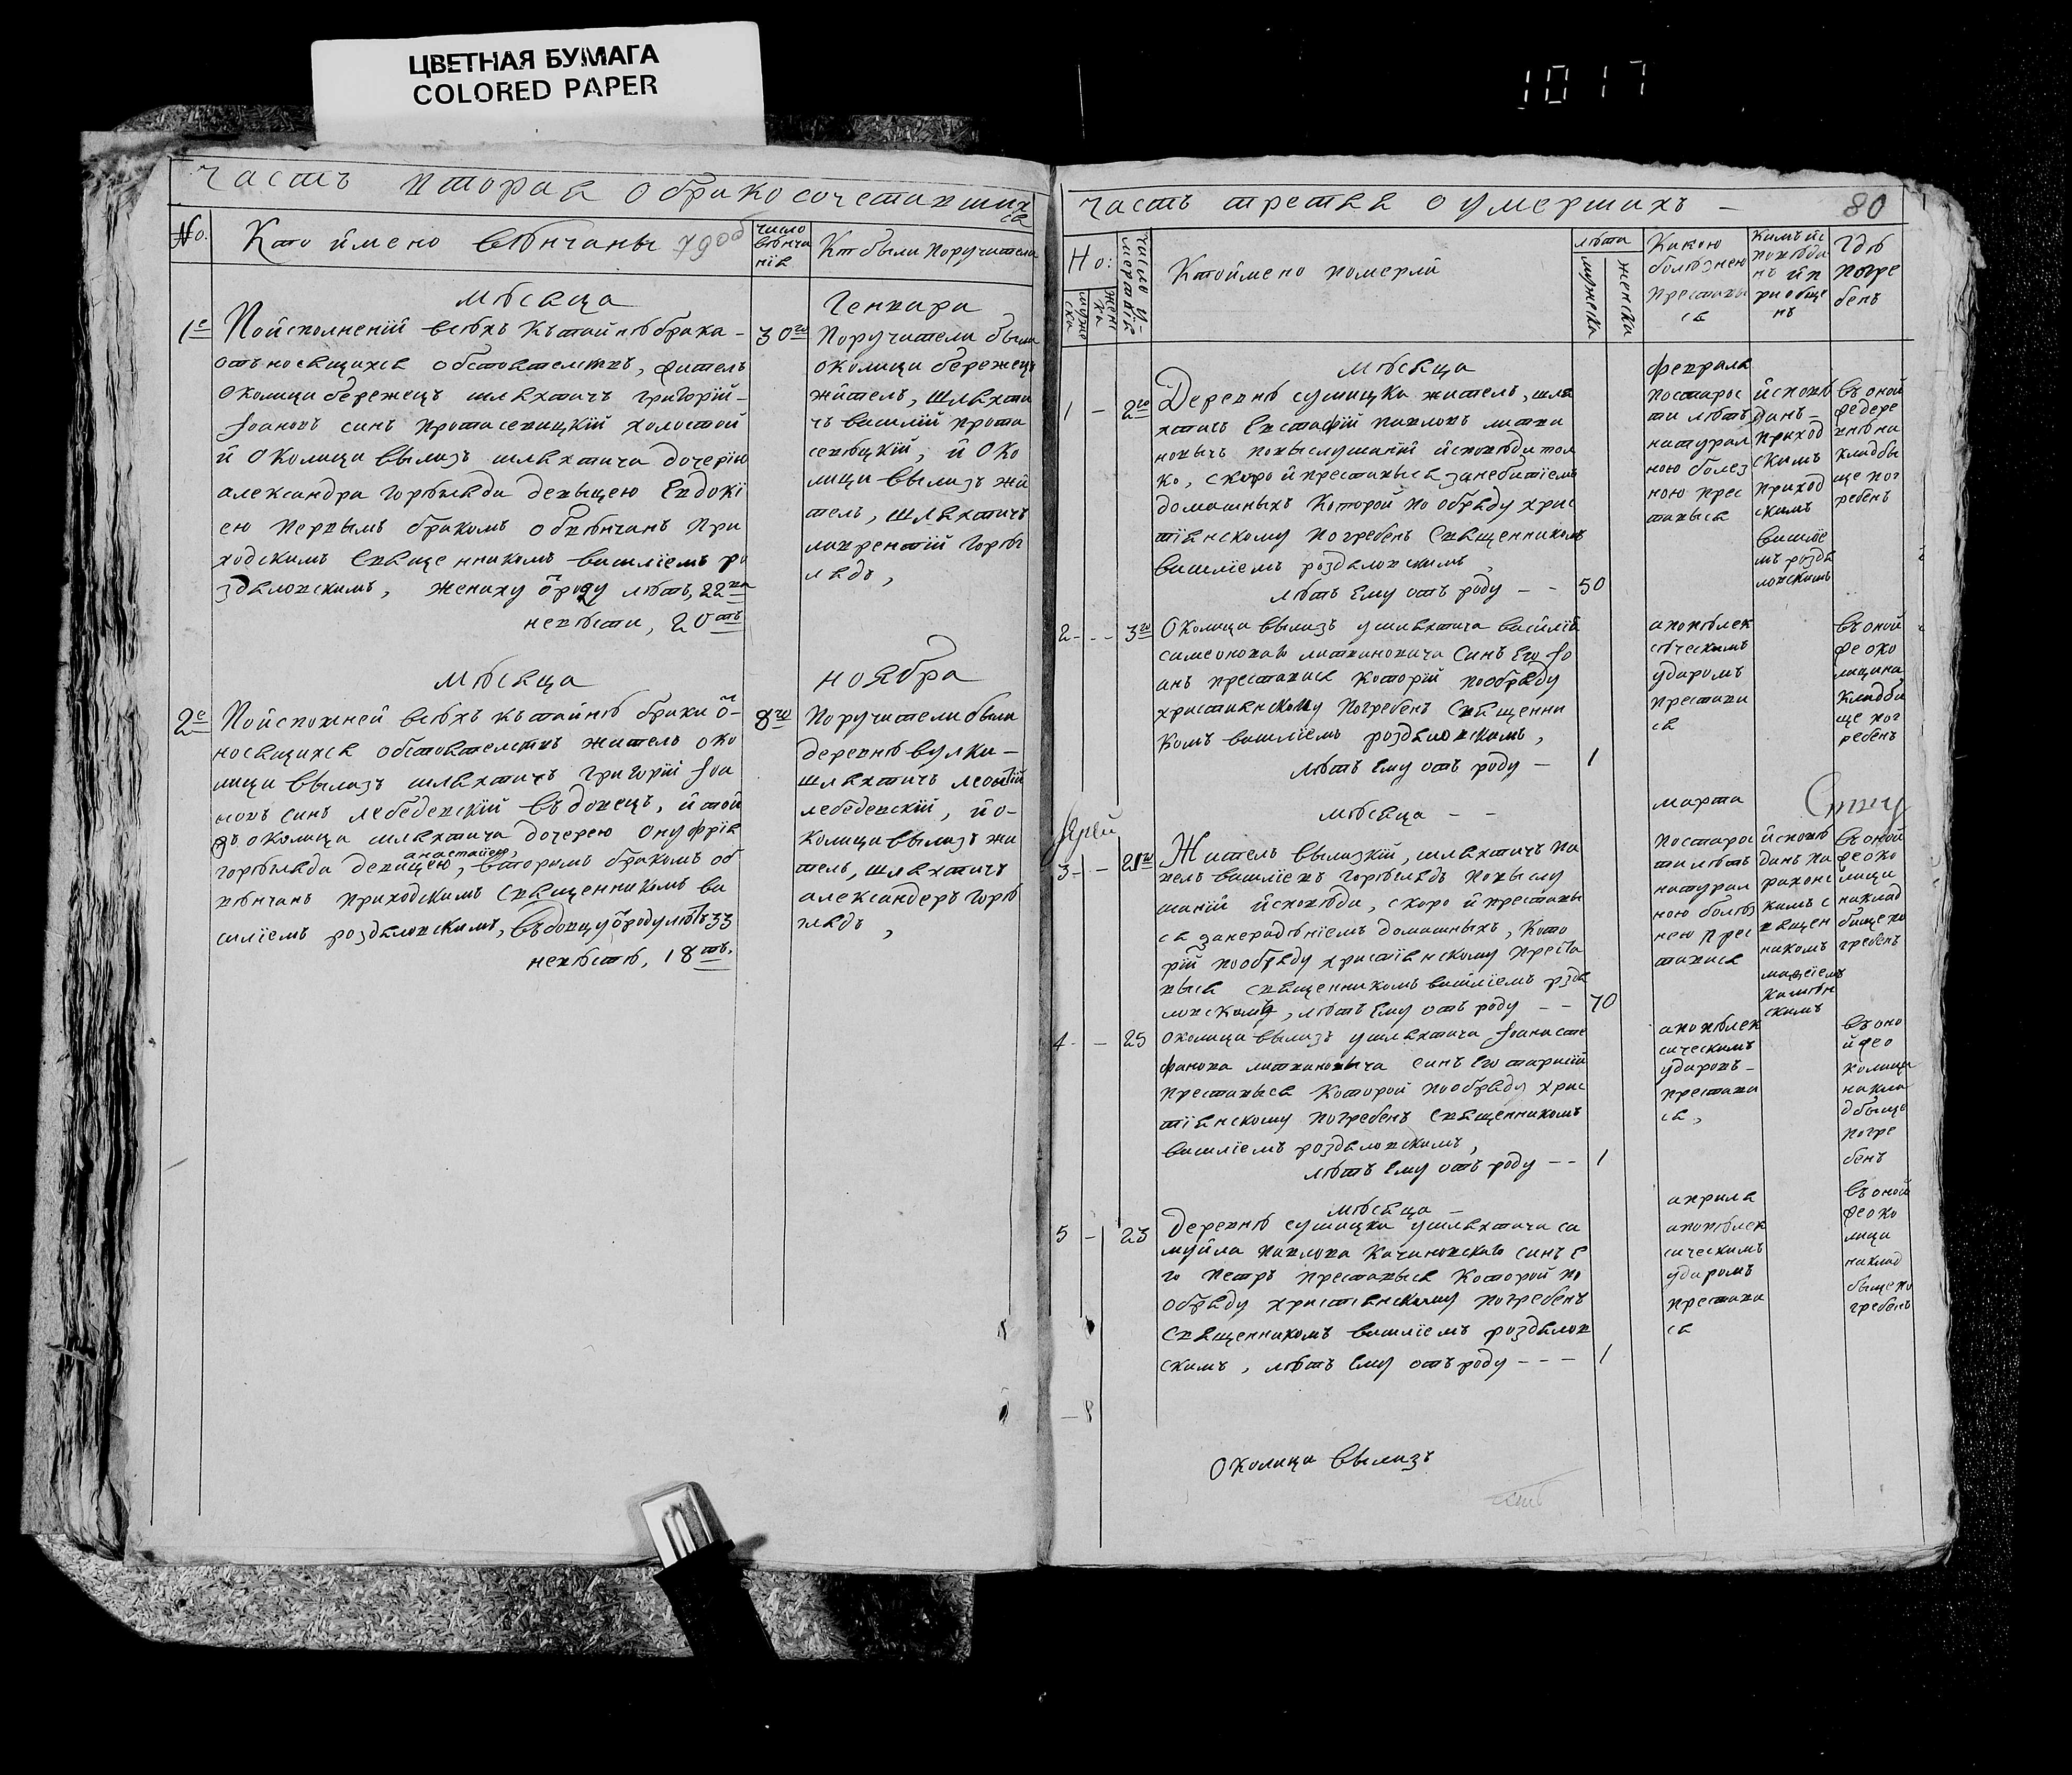 ЦВЕТНАЯ БУМАГА
COLORED PAPER
1017
часть вторая о бракосочетавших
ся
No.
Кто ймено вѣнчаны
79об
число
вѣнча
нія
Кт были поручители
мѣсяца
Генвара
1е
Поисполненій всѣхъ къ тайнѣ брака -
относящихся обстоятелствъ, житель
околицы бережецъ шляхтичъ григорій -
Іоановъ синъ протасевицкій холостой
й околицы вылазъ шляхтича дочерію
александра горбыля девицею Евдокі
ею первымъ бракомъ обвѣнчанъ при
ходскимъ священникомъ василіемъ ро
здяловскимъ, жениху ѿ роду лѣтъ, 22ва
невѣсти, 20ть
30го
Поручители были
околици бережецъ
житель, шляхти
чъ василій прота
севѣцкій, й око
лици вылазъ жи
тель, шляхтичъ
лаврентій горбы
лядъ,
мѣсяца
ноября
2е
Пойсполненй всѣхъ къ тайнѣ браки ѿ-
носящихся обстоятелствъ житель око
лици вылазъ шляхтичъ григорій Іоа
новъ синъ лебедевскій вдовецъ, й той
околици шляхтича дочерею онуфрія
анастасіею
горбыляда девицею, вторымъ бракомъ об
вѣнчанъ приходскимъ священникомъ ва
силіемъ роздяловскимъ, вдовцу ѿ роду лѣтъ 33
невѣстѣ, 18ть.
8го
Поручители были
деревнѣ вулки -
шляхтичъ леонтій
лебедевскій, й о-
колици вылазъ жи
тель, шляхтичъ
александеръ горбы
лядъ,
часть третяя о умершихъ -
80
Но:
мужеска
женска
число умертвія
Кто ймено померлй
лѣта
мужеска
женска
Какою
болѣзнею
преставы
ся
Кимъ йс
поведа
нъ й п
риобще
нъ
Гдѣ
погре
бенъ
мѣсяца
февраля
1 - 2го
Деревнѣ сушицка житель, шля
хтичъ Евстафій павловъ литви
новычъ повыслушаній исповѣди тол
ко, скоро й преставыся занебитіемъ
домашныхъ которой по обряду хрис
тіянскому погребенъ священникомъ
василіемъ роздяловскимъ,
лѣтъ Ему отъ роду - - 50
постарос
ти лѣтъ
натурал
ною болез
ною прес
тавыся
йсповѣ
данъ -
приход
скимъ
приход
скимъ
василіе
мъ роздя
ловскимъ
въ оной
же дере
внѣ на
кладбы
ще пог
ребенъ
2 - - 3го
Околици вылазъ у шляхтича василія
симеоноваго литвиновича синъ Его Іо
анъ преставися которій пообряду
християнскому погребенъ священни
комъ василіемъ роздяловскимъ,
лѣтъ Ему отъ роду - 1
апоплек
сѣческимъ
ударомъ
престави
ся
въ оной
же око
лици на
кладби
ще пог
ребенъ
мѣсяца - -
марта
Іерей
3 - - 21го
Житель вылазкій, шляхтичъ па
велъ василіевъ горбылядъ повыслу
шаній йсповѣди, скоро й преставы
ся занерадѣніемъ домашныхъ, кото
рій пообряду христіянскому преста
выся священникомъ василіемъ роздя
ловскимъ, лѣтъ Ему отъ роду - - 70
постарос
ти лѣтъ
натурал
ною болѣз
нею прес
тавися
йсповѣ
данъ па
рахонс
кимъ с
вящен
никомъ
скимъ
въ оной
же око
лици
наклад
бище по
гребенъ
4 - - 25
околици вылазъ у шляхтича Іоана сте
фанова литвиновыча синъ Его
преставыся которой пообряду хрис
тіянскому погребенъ священникомъ
василіемъ роздяловскимъ,
лѣтъ Ему отъ роду - - 1
апоплек
сическимъ
ударомъ -
престави
ся,
въ оно
й же о
колици
накла
дбыще
погре
бенъ
мѣсяца -
априля
5 - 23
Деревнѣ сушицка у шляхтича са
муйла павлова качановскаго синъ Е
го Петръ преставыся которой по
обряду христіянскому погребенъ
священникомъ василіемъ роздялов
скимъ, лѣтъ Ему отъ роду - - - 1
апоплек
сическимъ
ударомъ
престави
ся
въ оной
же око
лици
наклад
быще по
гребенъ
Околици вылазъ